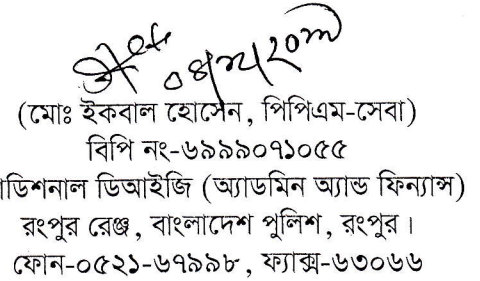 (মোঃ ইকবাল হোসেন, পিপিএম-সেবা)
বিপি নং-৬৯৯৯০৭১০৫৫
ডিশনাল ডিআইজি (অ্যাডমিন অ্যান্ড ফিন্যান্স)
রংপুর রেঞ্জ, বাংলাদেশ পুলিশ, রংপুর।
ফোন-০৫২১-৬৭৯৯৮, ফ্যাক্স-৬৩০৬৬